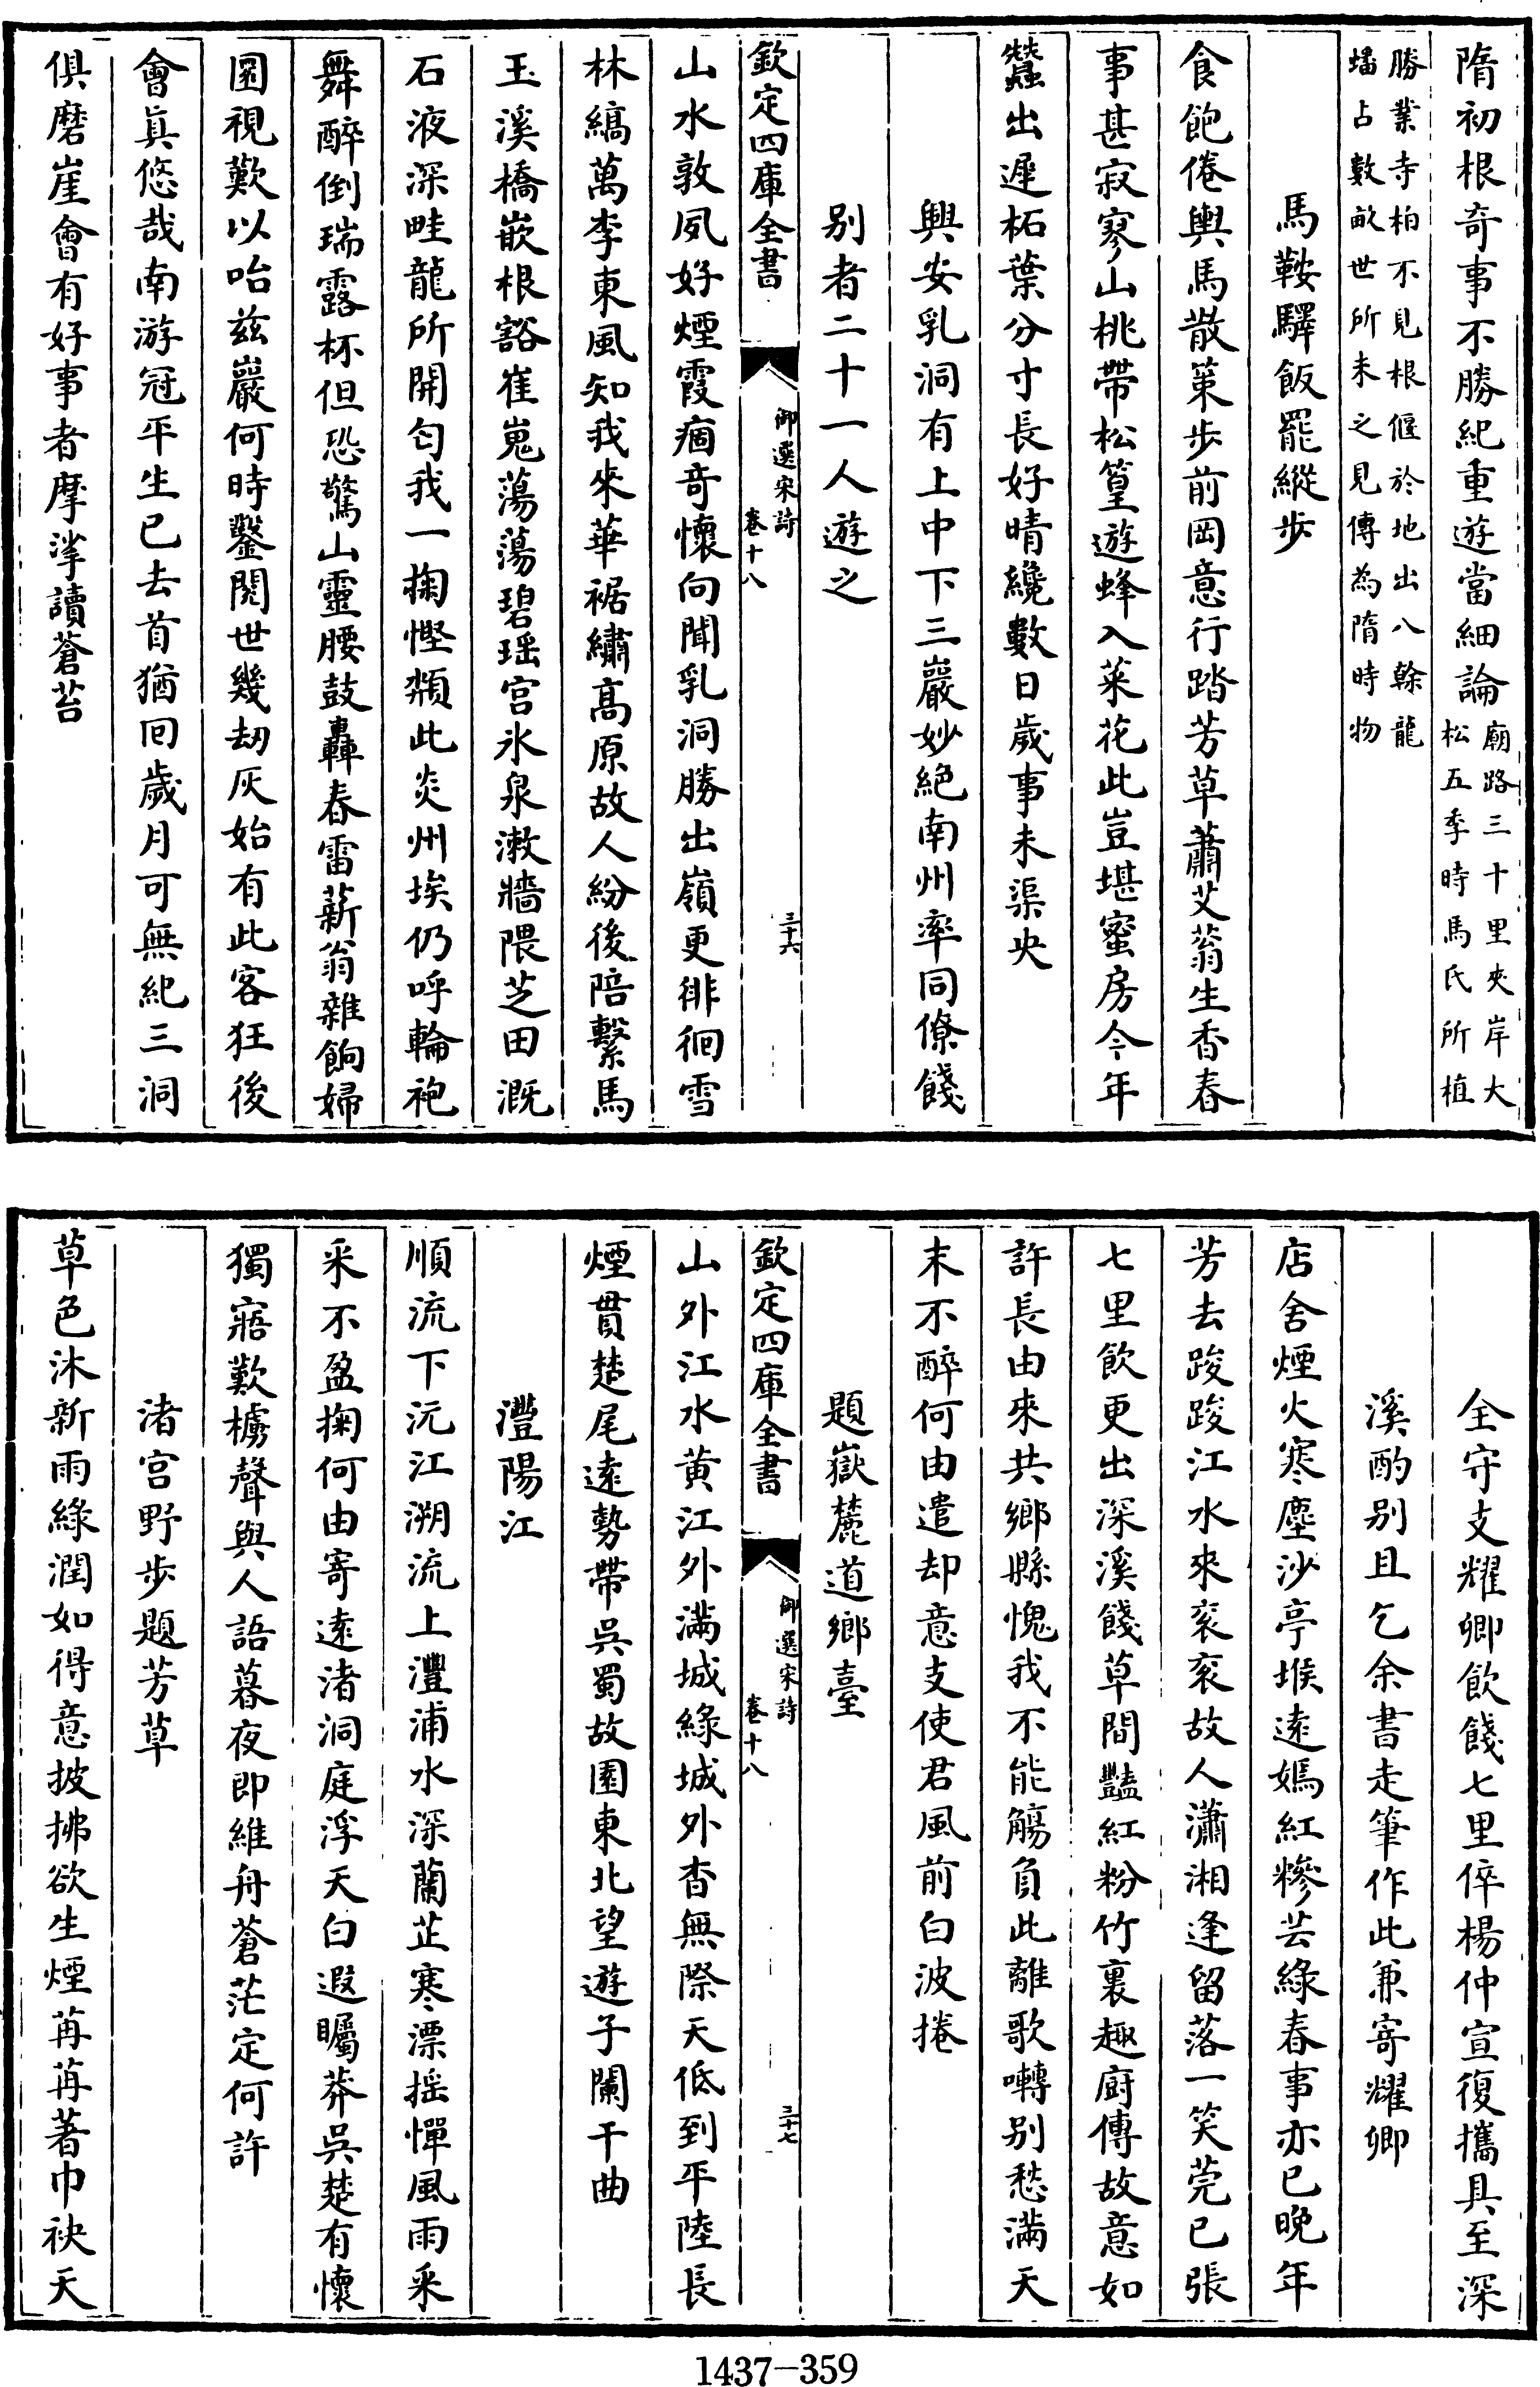 隋初根奇事不勝紀重遊當細論廟路三十里夾岸大松五季時馬氏所植
勝業寺柏不見根偃於地出八榦龍蟠占數畝世所未之見傳為隋時物
馬鞍驛飯罷縱步
食飽倦輿馬散策步前岡意行踏芳草蕭艾蓊生香春
事甚寂寥山桃帶松篁遊蜂入菜花此豈堪蜜房今年
蠶出遲柘葉分寸長好晴纔數日歲事未渠央
興安乳洞有上中下三巖妙絕南州率同僚餞
别者二十一人遊之
欽定四庫全書
御選宋詩
卷十八
三十六
山水敦夙好煙霞痼奇懷向聞乳洞勝出嶺更徘徊雪
林縞萬李東風知我來華裾繡高原故人紛後陪繫馬
玉溪橋嵌根豁崔嵬蕩蕩碧瑶宫氷泉漱牆隈芝田溉
石液深畦龍所開匀我一掬慳頮此炎州埃仍呼輪袍
舞醉倒瑞露杯但恐驚山靈腰鼓轟春雷薪翁雜餉婦
圜視歎以咍兹巖何時鑿閱世幾刼灰始有此客狂後
會眞悠哉南游冠平生已去首猶囘歲月可無紀三洞
俱磨崖會有好事者摩挲讀蒼苔
全守支耀卿飲餞七里倅楊仲宣復攜具至深
溪酌别且乞余書走筆作此兼寄耀卿
店舍煙火寒塵沙亭堠遠嫣紅糝芸綠春事亦已晚年
芳去踆踆江水來衮衮故人瀟湘逢留落一笑莞已張
七里飲更出深溪餞草間豔紅粉竹裏趣廚傳故意如
許長由來共鄉縣愧我不能觴負此離歌囀别愁滿天
末不醉何由遣却意支使君風前白波捲
題嶽麓道鄉臺
欽定四庫全書
御選宋詩
卷十八
三十七
山外江水黄江外滿城綠城外杳無際天低到平陸長
煙貫楚尾遠勢帶吳蜀故園東北望遊子闌干曲
灃陽江
順流下沅江溯流上灃浦水深蘭芷寒漂摇憚風雨采
采不盈掬何由寄遠渚洞庭浮天白遐矚莽吳楚有懷
獨寤歎櫓聲與人語暮夜即維舟蒼茫定何許
渚宫野步題芳草
草色沐新雨綠潤如得意披拂欲生煙苒苒著巾袂天
1437-359